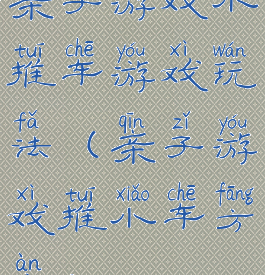 亲子游戏小
tuī chē yóu xì wán
推车游戏玩
fǎ qīn zǐ yóu
法（亲子游
xì tuī xiǎo chē fāng
戏推小车方
àn